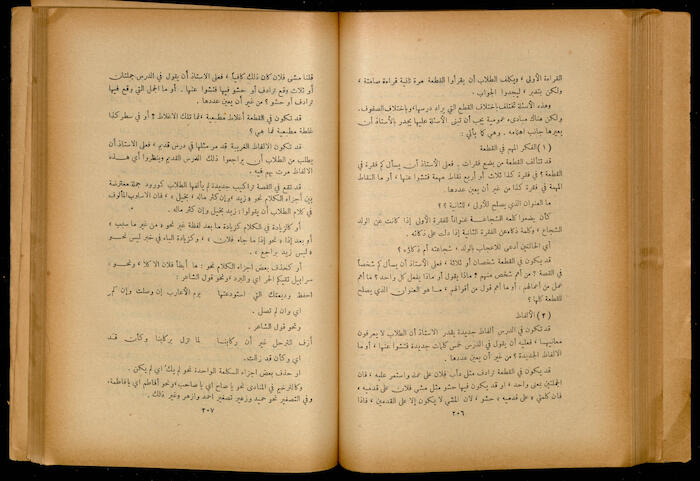 القراءة الأولى ، ويكلف الطلاب أن يقرأوا القطعة مرة ثانية قراءة صامتة ،
ولكن بتدبر ، ليجدوا الجواب .
وهذه الأسئلة تختلف باختلاف القطع التي يراد درسها ، وباختلاف الصفوف .
ولكن هناك مبادىء عمومية يجب أن تبنى الأسئلة عليها يجدر بالأستاذ أن
يعيرها جانب اهتمامه . وهي كما يأتي :
( ١ ) الفكر المهم في القطعة
قد تتألف القطعة من بضع فقرات . فعلى الأستاذ أن يسأل كم فقرة في
القطعة ؟ في فقرة كذا ثلاث أو أربع نقاط مهمة فتشوا عنها ، أو ما النقاط
المهمة في فقرة كذا من غير أن يعين عددها .
ما العنوان الذي يصلح للأولى ، للثانية ؟؟
كأن يضعوا كلمة الشجاعة عنواناً للفقرة الأولى إذا كانت عن الولد
الشجاع ، وكلمة ذكاء عن الفقرة الثانية إذا دلت على ذكائه .
أي الحالتين أدعى للاعجاب بالولد ، شجاعته أم ذكاؤه ؟
قد يكون في القطعة شخصان أو ثلاثة ، فعلى الأستاذ أن يسأل كم شخصاً
في القصة ؟ من أهم شخص منهم ؟ ماذا يقول أو ماذا يفعل كل واحد ؟ ما أهم
عمل من أعمالهم : أو ما أهم قول من أقوالهم ، ما هو العنوان الذي يصلح
للقطعة كلها ؟
( ٢ ) الالفاظ
قد تكون في الدرس ألفاظ جديدة يقدر الاستاذ أن الطلاب لا يعرفون
معانيها ، فعليه أن يقول في الدرس خمس كلمات جديدة فتشوا عنها ، أو ما
الالفاظ الجديدة ؟ من غير أن يعين عددها .
قد يكون في القطعة ترادف مثل دأب فلان على عمله واستمر عليه ، فان
الجملتين بمعنى واحد ، او قد يكون فيها حشو مثل مشى فلان على قدميه ،
فان كلمتي « على قدميه » حشو ، لان المشي لا يكون إلا على القدمين ، فاذا
٢٠٦
قلنا مشى فلان كان ذلك كافياً . فعلى الاستاذ أن يقول في الدرس جملتان
أو ثلاث وقع ترادف أو حشو فيها فتشوا عنها . أو ما الجمل التي وقع فيها
ترادف أو حشو ؟ من غير أن يعين عددها .
قد تكون في القطعة أغلاط مطبعية ، فما تلك الاغلاط ؟ أو في سطر كذا
غلطة مطبعية فما هي ؟
قد تكون الالفاظ الغريبة قد مر مثلها في درس قديم ، فعلى الاستاذ أن
يطلب من الطلاب أن يراجعوا ذلك الدرس القديم وينظروا أي هذه
الالفاظ مرت بهم فيه .
قد تقع في القصة تراكيب جديدة لم يألفها الطلاب كورود جملة معترضة
بين أجزاء الكلام نحو « زيد ، وإن كثر ماله ، بخيل » ، فان الاسلوب المألوف
في كلام الطلاب أن يقولوا : زيد بخيل وإن كثر ماله .
أو كالزيادة في الكلام كزيادة ما بعد لفظة غير نحو « من غير ما سبب »
أو بعد إذا « نحو إذا ما جاء فلان » ، وكزيادة الباء في خبر ليس نحو
« ليس زيد براجع » .
أو كحذف بعض اجزاء الكلام نحو : ما أبطأ فلان الا كلا ، ونحو :
سرابيل تقيكم الحر اي والبرد ، ونحو قول الشاعر :
احفظ وديعتك التي استودعتها يوم الأعارب إن وصلت وإن لم
اي وان لم تصل .
ونحو قول الشاعر .
أزف الترحل غير أن ركابنا لما تزل برحالنا وكأن قد
اي وكأن قد زالت .
او حذف بعض اجزاء الكلمة الواحدة نحو لم يك اي لم يكن .
وكالترخيم في المنادى نحو يا صاح اي يا صاحب ، ونحو أفاطم اي يا فاطمة ،
وفي التصغير نحو حميد وزهير تصغير احمد وازهر وغير ذلك ..
٢٠٧